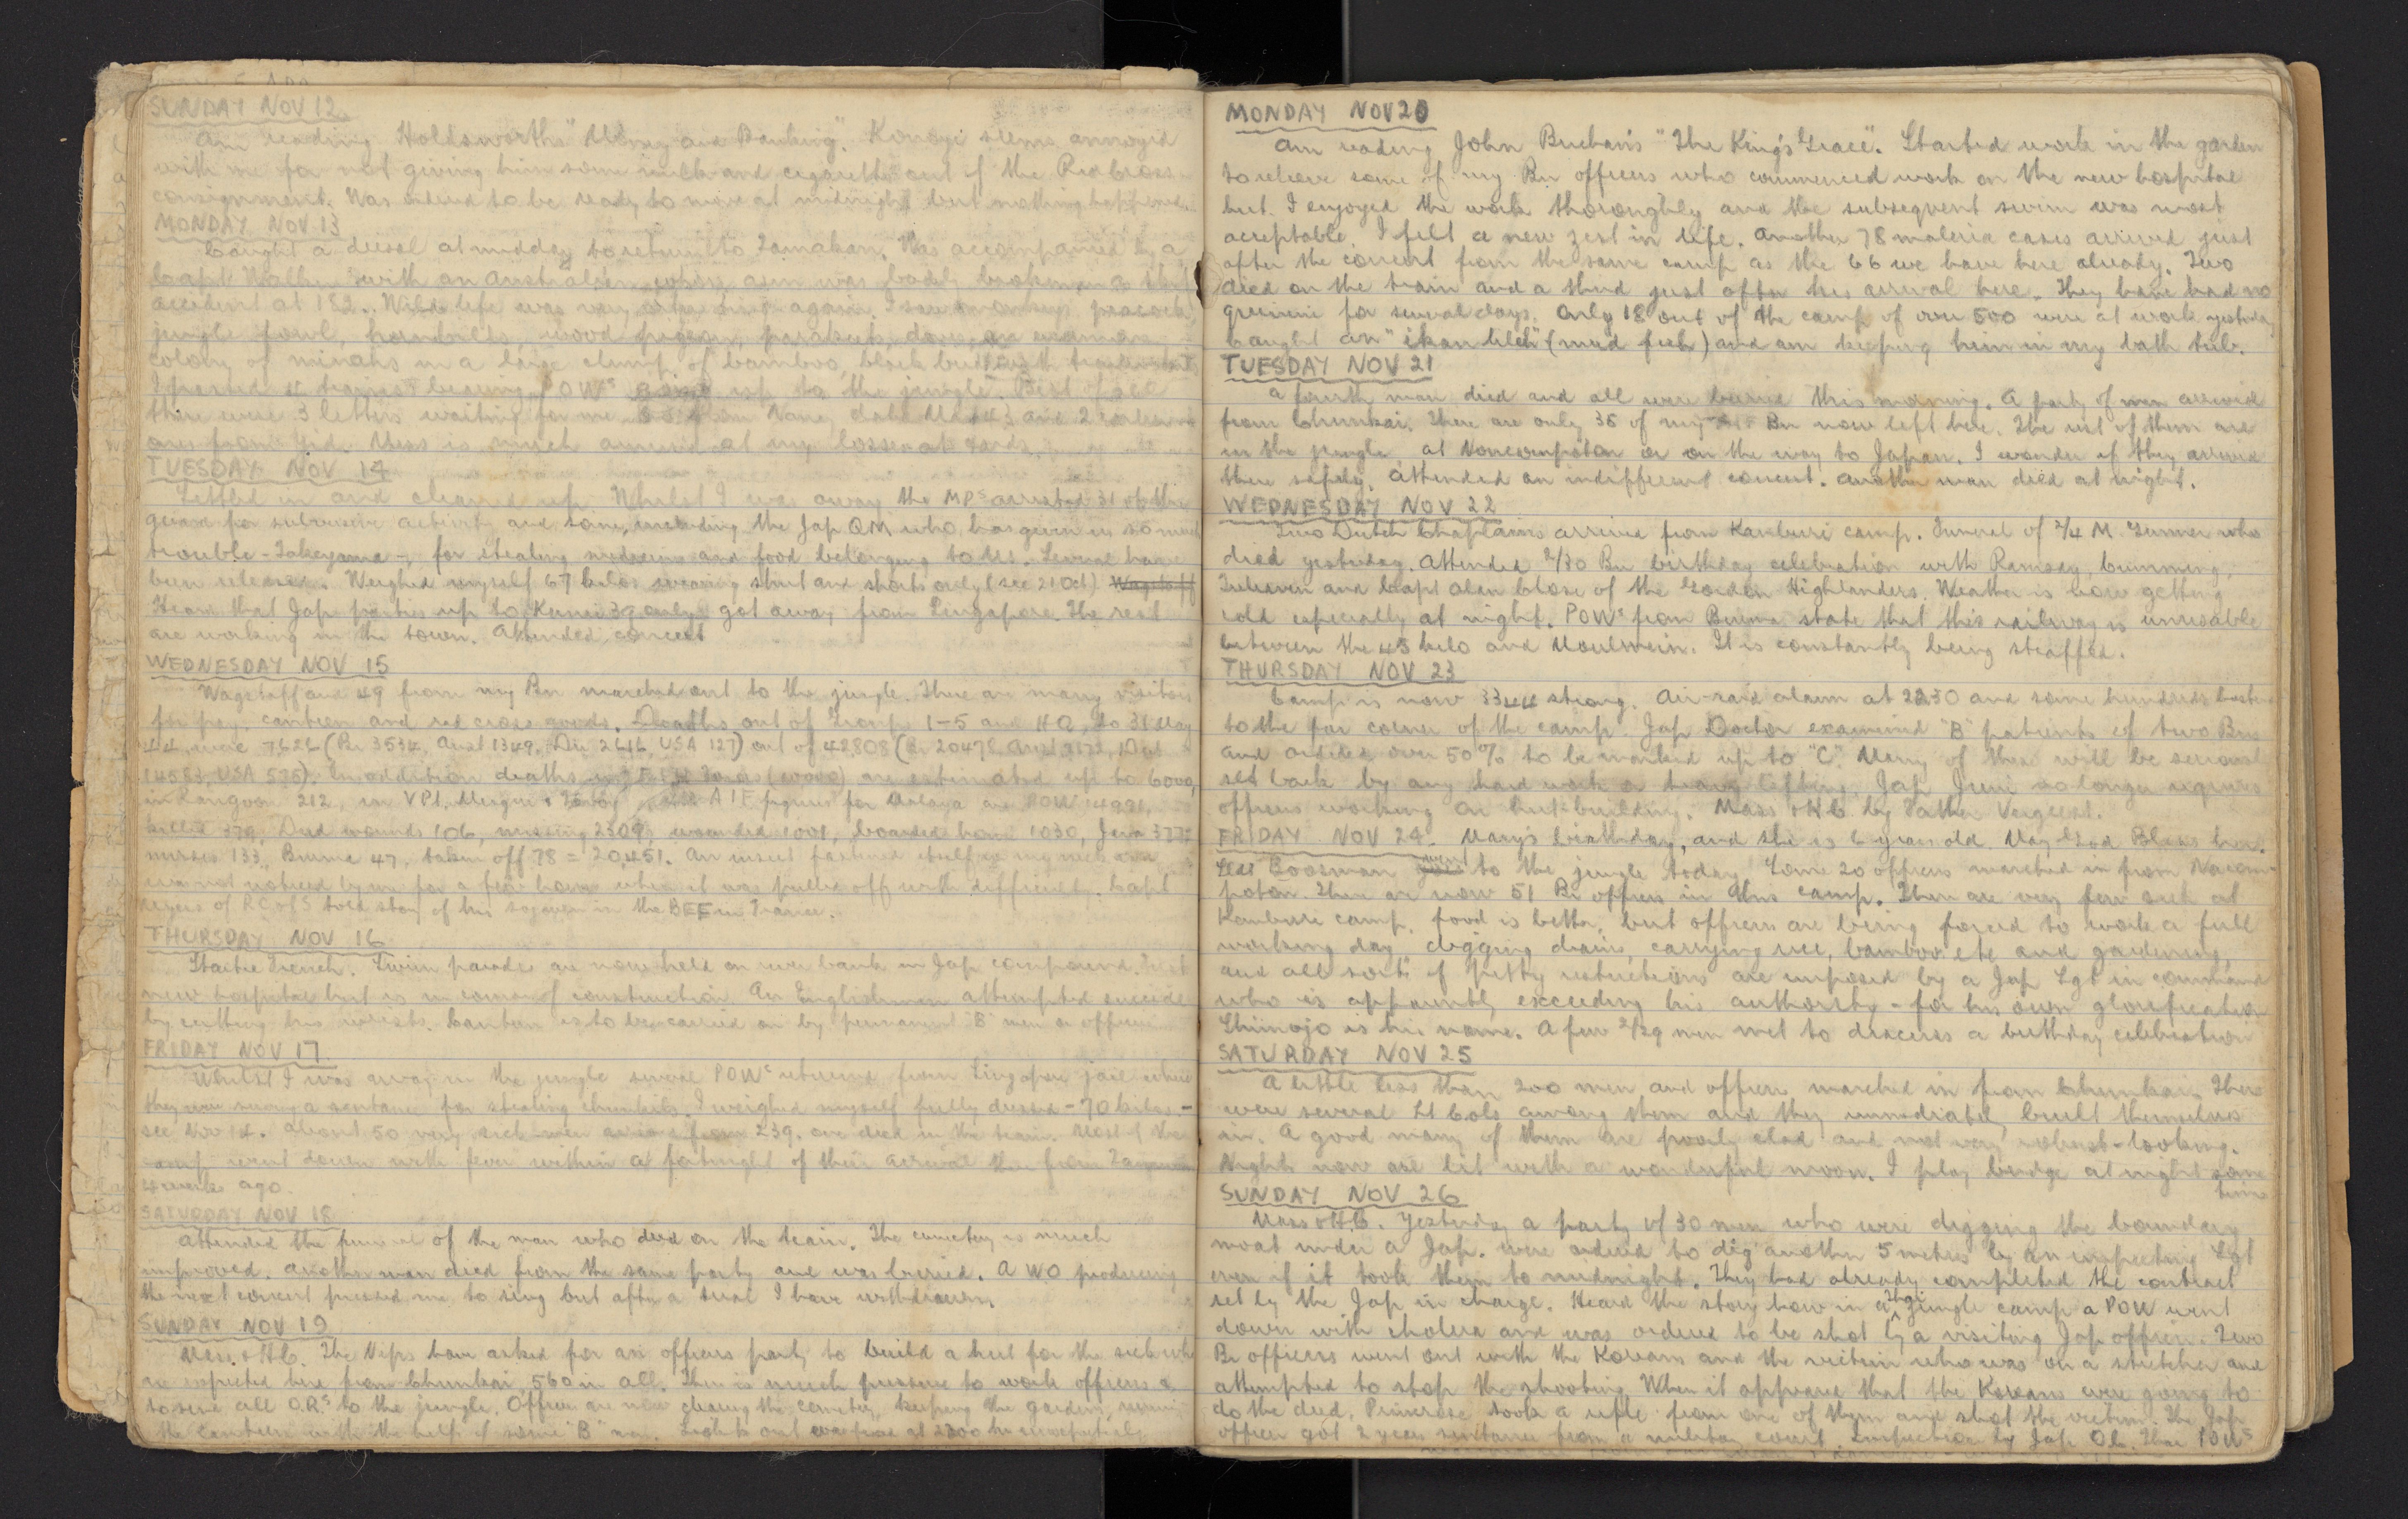 SUNDAY NOV 12
Am reading Holdsworth's "Money and Banking". Konoyi seems annoyed
with me for not giving him some milk and cigarettes out of the Red Cross
consignment. Was ordered to be ready to move at midnight but nothing happened.
MONDAY NOV 13
Caught a diesel at midday to return to Tamakan. Was accompanied by a
Capt with an Australian whose arm was badly broken in a
accident at 182. Wild life was very again. I saw monkeys, peacock,
jungle fowl, hornbills, wood pigeon, parakeets, doves, an enormous
colony of minahs in a large clump of bamboo, black birds with
I passed 4 trains bearing POWs up to the jungle. Best of all
there were 3 letters waiting for me from Nancy dated 43 and 2
from Sid. Mess is much amused at my losses at cards.
TUESDAY NOV 14
Settled in and cleaned up. Whilst I was away the MPs arrested 31 of the
guard for subversive activity and some, including the Jap QM who has given us so much
trouble - Takeyama -, for stealing medicine and food belonging to us. Several have
been released. Weighed myself 67 kilos wearing shirt and shorts only (see 21 Oct) Wagstaff
Hears that Jap parties up to 39 only got away from Singapore. The rest
are working in the town. Attended concert
WEDNESDAY NOV 15
Wagstaff and 49 from my Bn marched out to the jungle. There are many visitors
for pay, canteen and red cross goods. Deaths out of Groups 1-5 and HQ, to 31 May
44, were 7626 (Br 3534, Aust 1349, Du 2616, USA 127) out of 42808 (Br 20478 Aust 7172, Dut
14683, USA 535). In addition deaths in F & H Forces (10000) are estimated up to 6000,
in Rangoon 212, in VPt, Mergui & Tavoy AIF figures for Malaya are POW 14921,
killed 379, Died wounds 106, missing 2309, wounded 1001, boarded home 1030, Java
nurses 133, Burma 47, taken off 78 = 20,451. An insect fastened itself on my neck and
was not noticed by me for a few hours when it was pulled off with difficulty. Capt
of RC of S told story of his sojourn in the BEF in France.
THURSDAY NOV 16
Started French. Swim parades are now held on river bank in Jap compound.
new hospital hut is in course of construction. An Englishman attempted suicide
by cutting his wrists. Canteen is to be carried on by permanent "B" men or officers
FRIDAY NOV 17
Whilst I was away in the jungle several POWs returned from Singapore jail where
they were serving a sentence for stealing I weighed myself fully dressed - 70 kilos -
see Nov 14. About 50 very sick men arrived from 239. One died in the train. Most of the
camp went down with fever within a fortnight of their arrival there from
4 weeks ago.
SATURDAY NOV 18
Attended the funeral of the man who died on the train. The cemetery is much
improved. Another man died from the same party and was buried. A WO producing
the next concert pressed me to sing but after a trial I have withdrawn.
SUNDAY NOV 19
Mass & HC. The Nips have asked for an officers party to build a hut for the sick who
are expected here from Chunkai, 560 in all. There is much pressure to work officers &
to send all O.R.s to the jungle. Officers are now clearing the cemetery, keeping the garden, running
the canteen with the help of some "B" men. Lights out at 2200 hrs
MONDAY NOV 20
Am reading John Buchan's "The King's Grace". Started work in the garden
to relieve some of my Bn officers who commenced work on the new hospital
hut. I enjoyed the work thoroughly and the subsequent swim was most
acceptable. I felt a new zest in life. Another 78 malaria cases arrived just
after the concert from the same camp as the 66 we have here already. Two
died on the train and a third just after his arrival here. They have had no
quinine for several days. Only 18 out of the camp of over 500 were at work yesterday
Caught an "ikan lileh" (mud fish) and am keeping him in my bath tub.
TUESDAY NOV 21
A fourth man died and all were buried this morning. A party of men arrived
from Chunkai. There are only 35 of my Bn now left here. The rest of them are
in the jungle, at Nonconpoton or on the way to Japan. I wonder if they arrived
there safely. Attended an indifferent concert. Another man died at night.
WEDNESDAY NOV 22
Two Dutch Chaplains arrived from Kanburi camp. Funeral of 2/4 M. Gunner who
died yesterday. Attended 2/30 Bn birthday celebration with Ramsay, Cumming,
and Capt Alan Close of the Gordon Highlanders. Weather is now getting
cold especially at night. POWs from Burma state that this railway is unusable
between the 45 kilo and Moulmein. It is constantly being straffed.
THURSDAY NOV 23
Camp is now 3344 strong. Air-raid alarm at 2230 and some hundreds hasten
to the far corner of the camp. Jap Doctor examined "B" patients of two Bns
and ordered over 50% to be marked up to "C". Many of these will be seriously
set back by any hard work or heavy lifting. Jap no longer requires
officers working on hut-building. Mass & HC by Father Vergeest.
FRIDAY NOV 24. Mary's birthday, and she is 6 years old. May God Bless her.
Boosman to the jungle today. Some 20 officers marched in from Nacom-
poton. There are now 51 Br officers in this camp. There are very few sick at
Kanburi camp, food is better, but officers are being forced to work a full
working day, digging drains, carrying rice, bamboo etc and gardening,
and all sorts of petty restrictions are imposed by a Jap Sgt in command
who is apparently exceeding his authority - for his own glorification
Shimojo is his name. A few 2/29 men met to discuss a birthday celebration
SATURDAY NOV 25
A little less than 200 men and officers marched in from Chunkai. There
were several Lt Cols among them and they immediately built themselves
in. A good many of them are poorly clad and not very robust-looking.
Nights now are lit with a wonderful moon. I play bridge at night some
time
SUNDAY NOV 26
Mass & H.C. Yesterday a party of 30 men who were digging the boundary
moat under a Jap. were ordered to dig another 5 metres by an inspecting Sgt
even if it took them to midnight. They had already completed the contract
set by the Jap in charge. Heard the story how in a jungle camp a POW went
down with cholera and was ordered to be shot by a visiting Jap officer. Two
Br officers went out with the Koreans and the victim who was on a stretcher and
attempted to stop the shooting. When it appeared that the Koreans were going to
do the deed, Primrose took a rifle from one of them and shot the victim. The Jap
officer got 2 years sentence from a military court. Inspection by Jap Three POWs